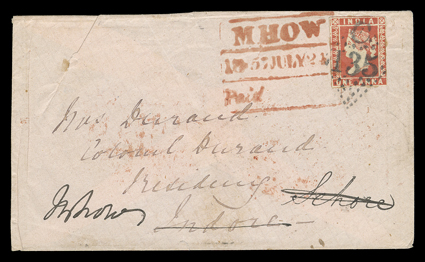 MHOW
INDIA
57 JULY 2
135
Paid
ONE ANNA
Mrs Durand
Colonel Durand
Residency
Sehore
Indore